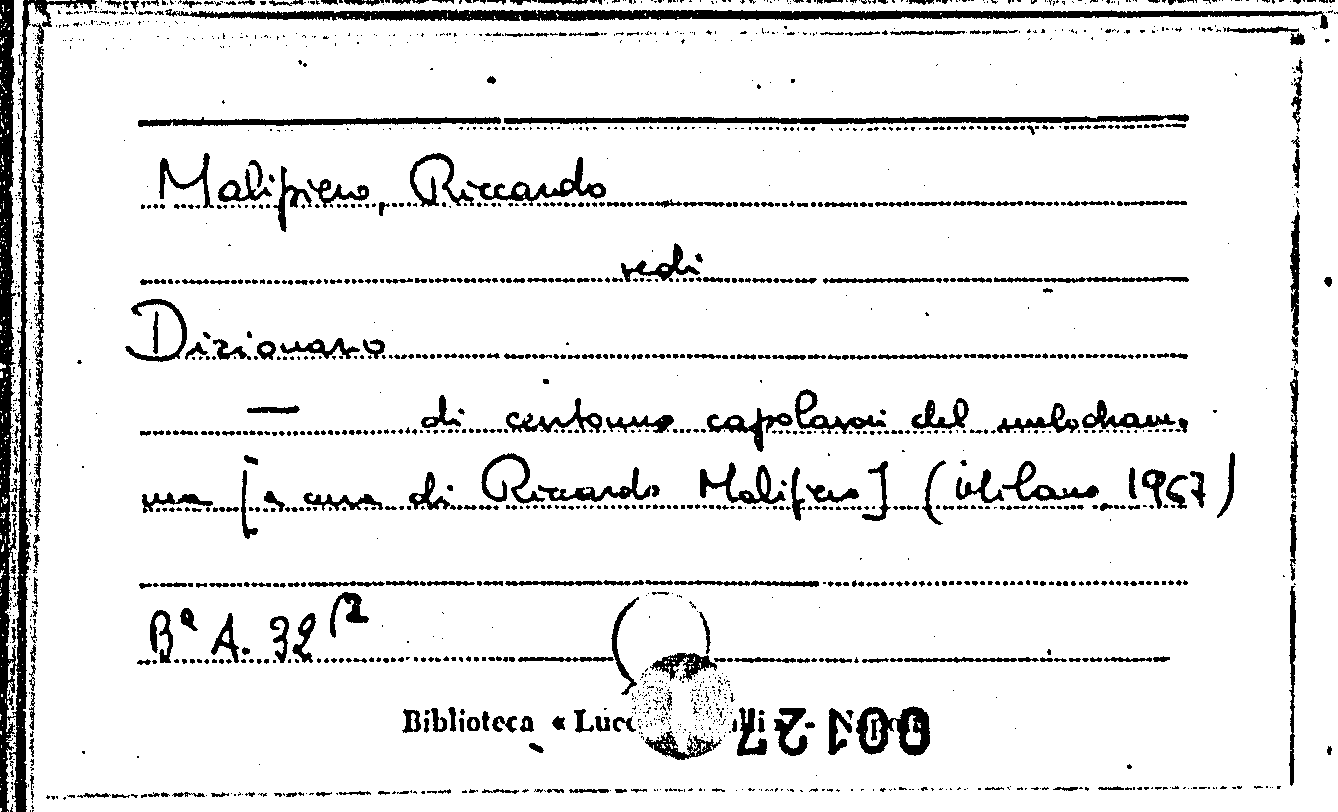 Malipiero, Riccardo
vedi
Dizionario
— di centouno capolavori del melodram.
ma [a cura di Riccardo Malipiero] (Milano, 1967)
Bª A. 32 /2
Biblioteca «
00127